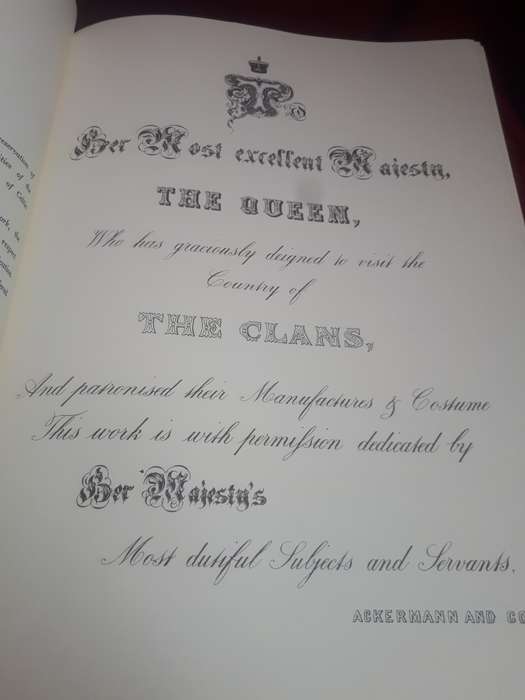 To
Her Most excellent Majesty,
THE QUEEN,
Who has graciously deigned to visit the
Country of
THE CLANS,
And patronised their Manufactures & Costume
This work is with permiſsion dedicated by
Her Majesty's
Most dutiful Subjects and Servants.
ACKERMANN AND CO